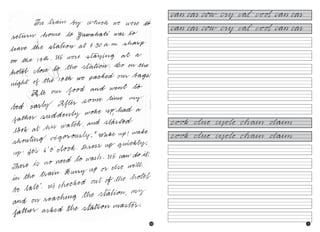 The train by which we were to
return home to Guwahati was to
leave the station at 6:30 a.m. sharp
on the 19th. We were staying at a
hotel close to the station. So on the
night of the 18th we packed our bags
Ate our food and went to
bed early. After some time my
father suddenly woke up had a
look at his watch, and started
shouting vigorously, "Wake up, wake
up. It's 6 o'clock. Dress up quickly;
There is no need to wash. We can do it
in the train. Hurry up or else will
be late". We checked out of the hotel
and on reaching the station, my
father asked the station master.
can car cow cry cat cool can car
can car cow cry cat cool can car